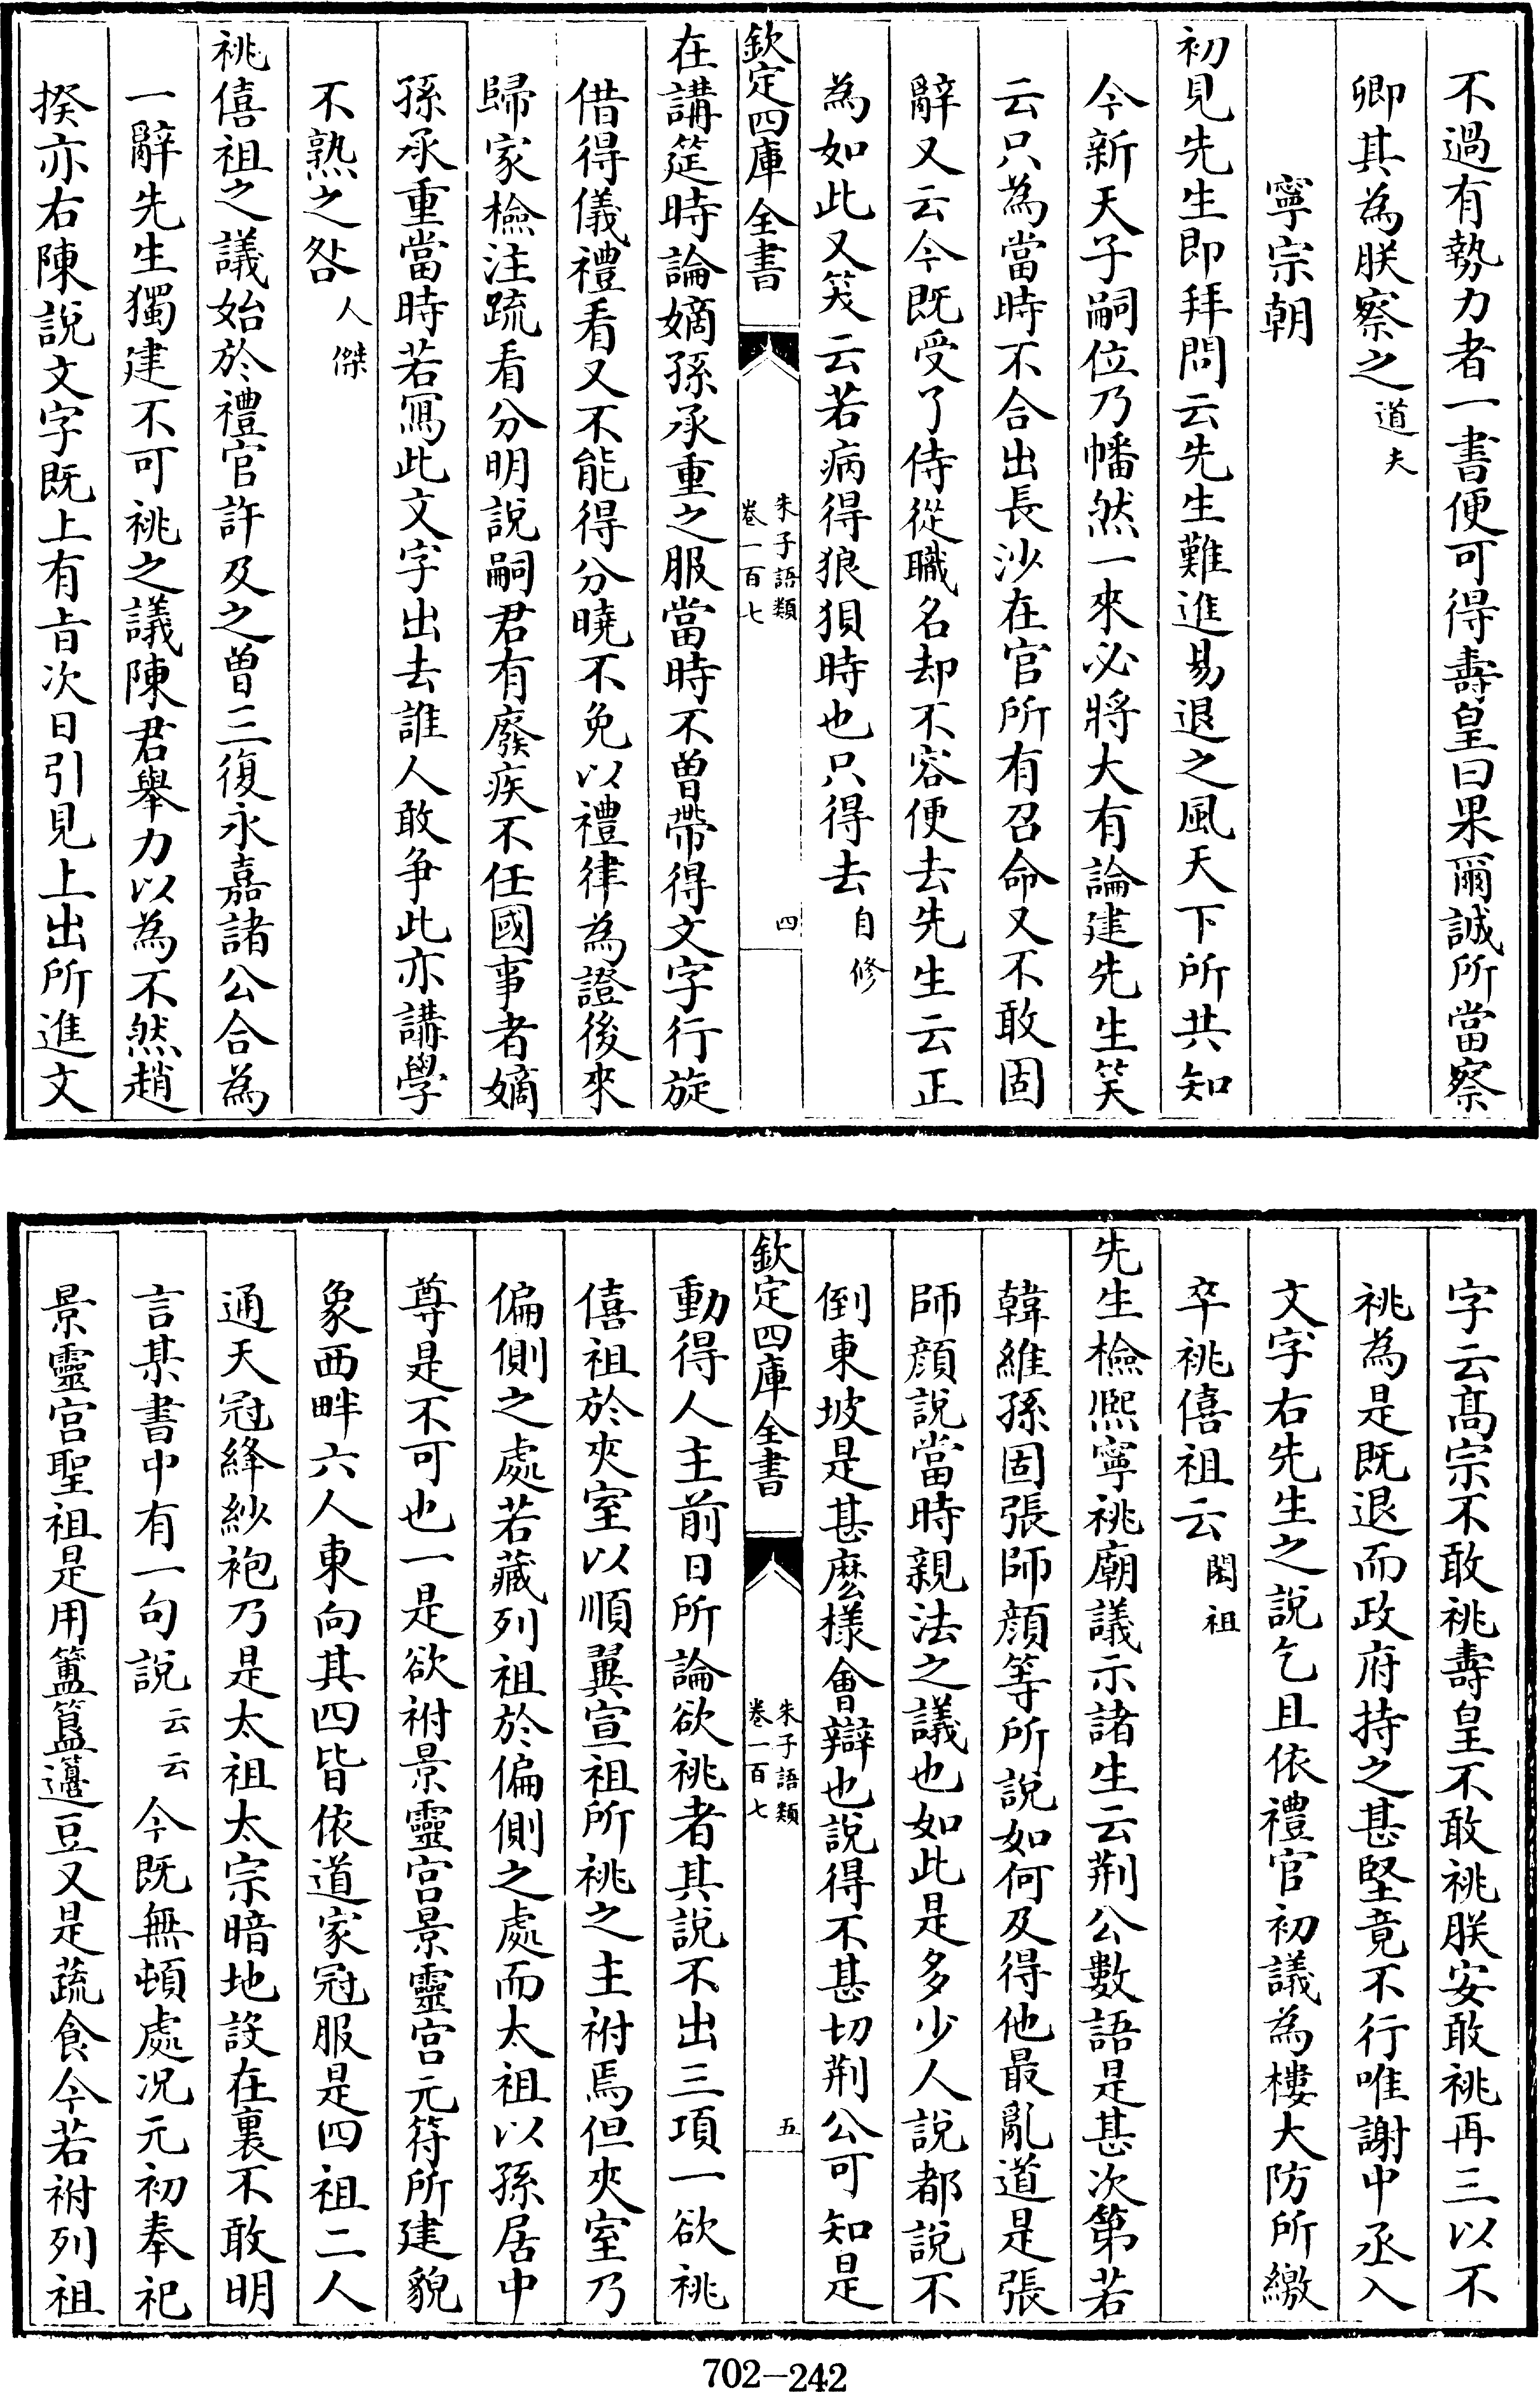 不過有勢力者一書便可得壽皇曰果爾誠所當察
卿其為朕察之道夫
寧宗朝
初見先生即拜問云先生難進易退之風天下所共知
今新天子嗣位乃幡然一來必將大有論建先生笑
云只為當時不合出長沙在官所有召命又不敢固
辭又云今既受了侍從職名却不容便去先生云正
為如此又笑云若病得狼狽時也只得去自修
欽定四庫全書
朱子語類
卷一百七
四
在講筵時論嫡孫承重之服當時不曽帶得文字行旋
借得儀禮看又不能得分曉不免以禮律為證後來
歸家檢注疏看分明說嗣君有廢疾不任國事者嫡
孫承重當時若寫此文字出去誰人敢争此亦講學
不熟之咎人傑
祧僖祖之議始於禮官許及之曽三復永嘉諸公合為
一辭先生獨建不可祧之議陳君舉力以為不然趙
揆亦右陳說文字既上有㫖次日引見上出所進文
字云髙宗不敢祧壽皇不敢祧朕安敢祧再三以不
祧為是既退而政府持之甚堅竟不行唯謝中丞入
文字右先生之說乞且依禮官初議為樓大防所繳
卒祧僖祖云閎祖
先生檢熈寧祧廟議示諸生云荆公數語是甚次第若
韓維孫固張師顔等所說如何及得他最亂道是張
師顔說當時親法之議也如此是多少人說都說不
倒東坡是甚麽樣會辯也說得不甚切荆公可知是
欽定四庫全書
朱子語類
卷一百七
五
動得人主前日所論欲祧者其說不出三項一欲祧
僖祖於夾室以順翼宣祖所祧之主祔焉但夾室乃
偏側之處若藏列祖於偏側之處而太祖以孫居中
尊是不可也一是欲祔景靈宫景靈宫元符所建貌
象西畔六人東向其四皆依道家冠服是四祖二人
通天冠絳紗袍乃是太祖太宗暗地設在裏不敢明
言某書中有一句說云云今既無頓處况元初奉祀
景靈宫聖祖是用簠簋籩豆又是蔬食今若祔列祖
702-242